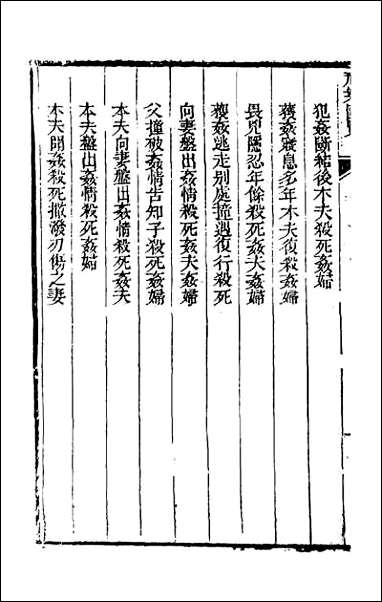 犯姦斷結後本夫殺死姦婦
獲姦寢息多年本夫復殺姦婦
畏兇隱忍年餘殺死姦夫姦婦
獲姦逃走別處撞遇復行殺死
向妻盤出姦情殺死姦夫姦婦
父撞破姦情告知子殺死姦婦
本夫向妻盤出姦情殺死姦夫
本夫盤出姦情殺死姦婦
本夫聞姦殺死撒潑刃傷之妻